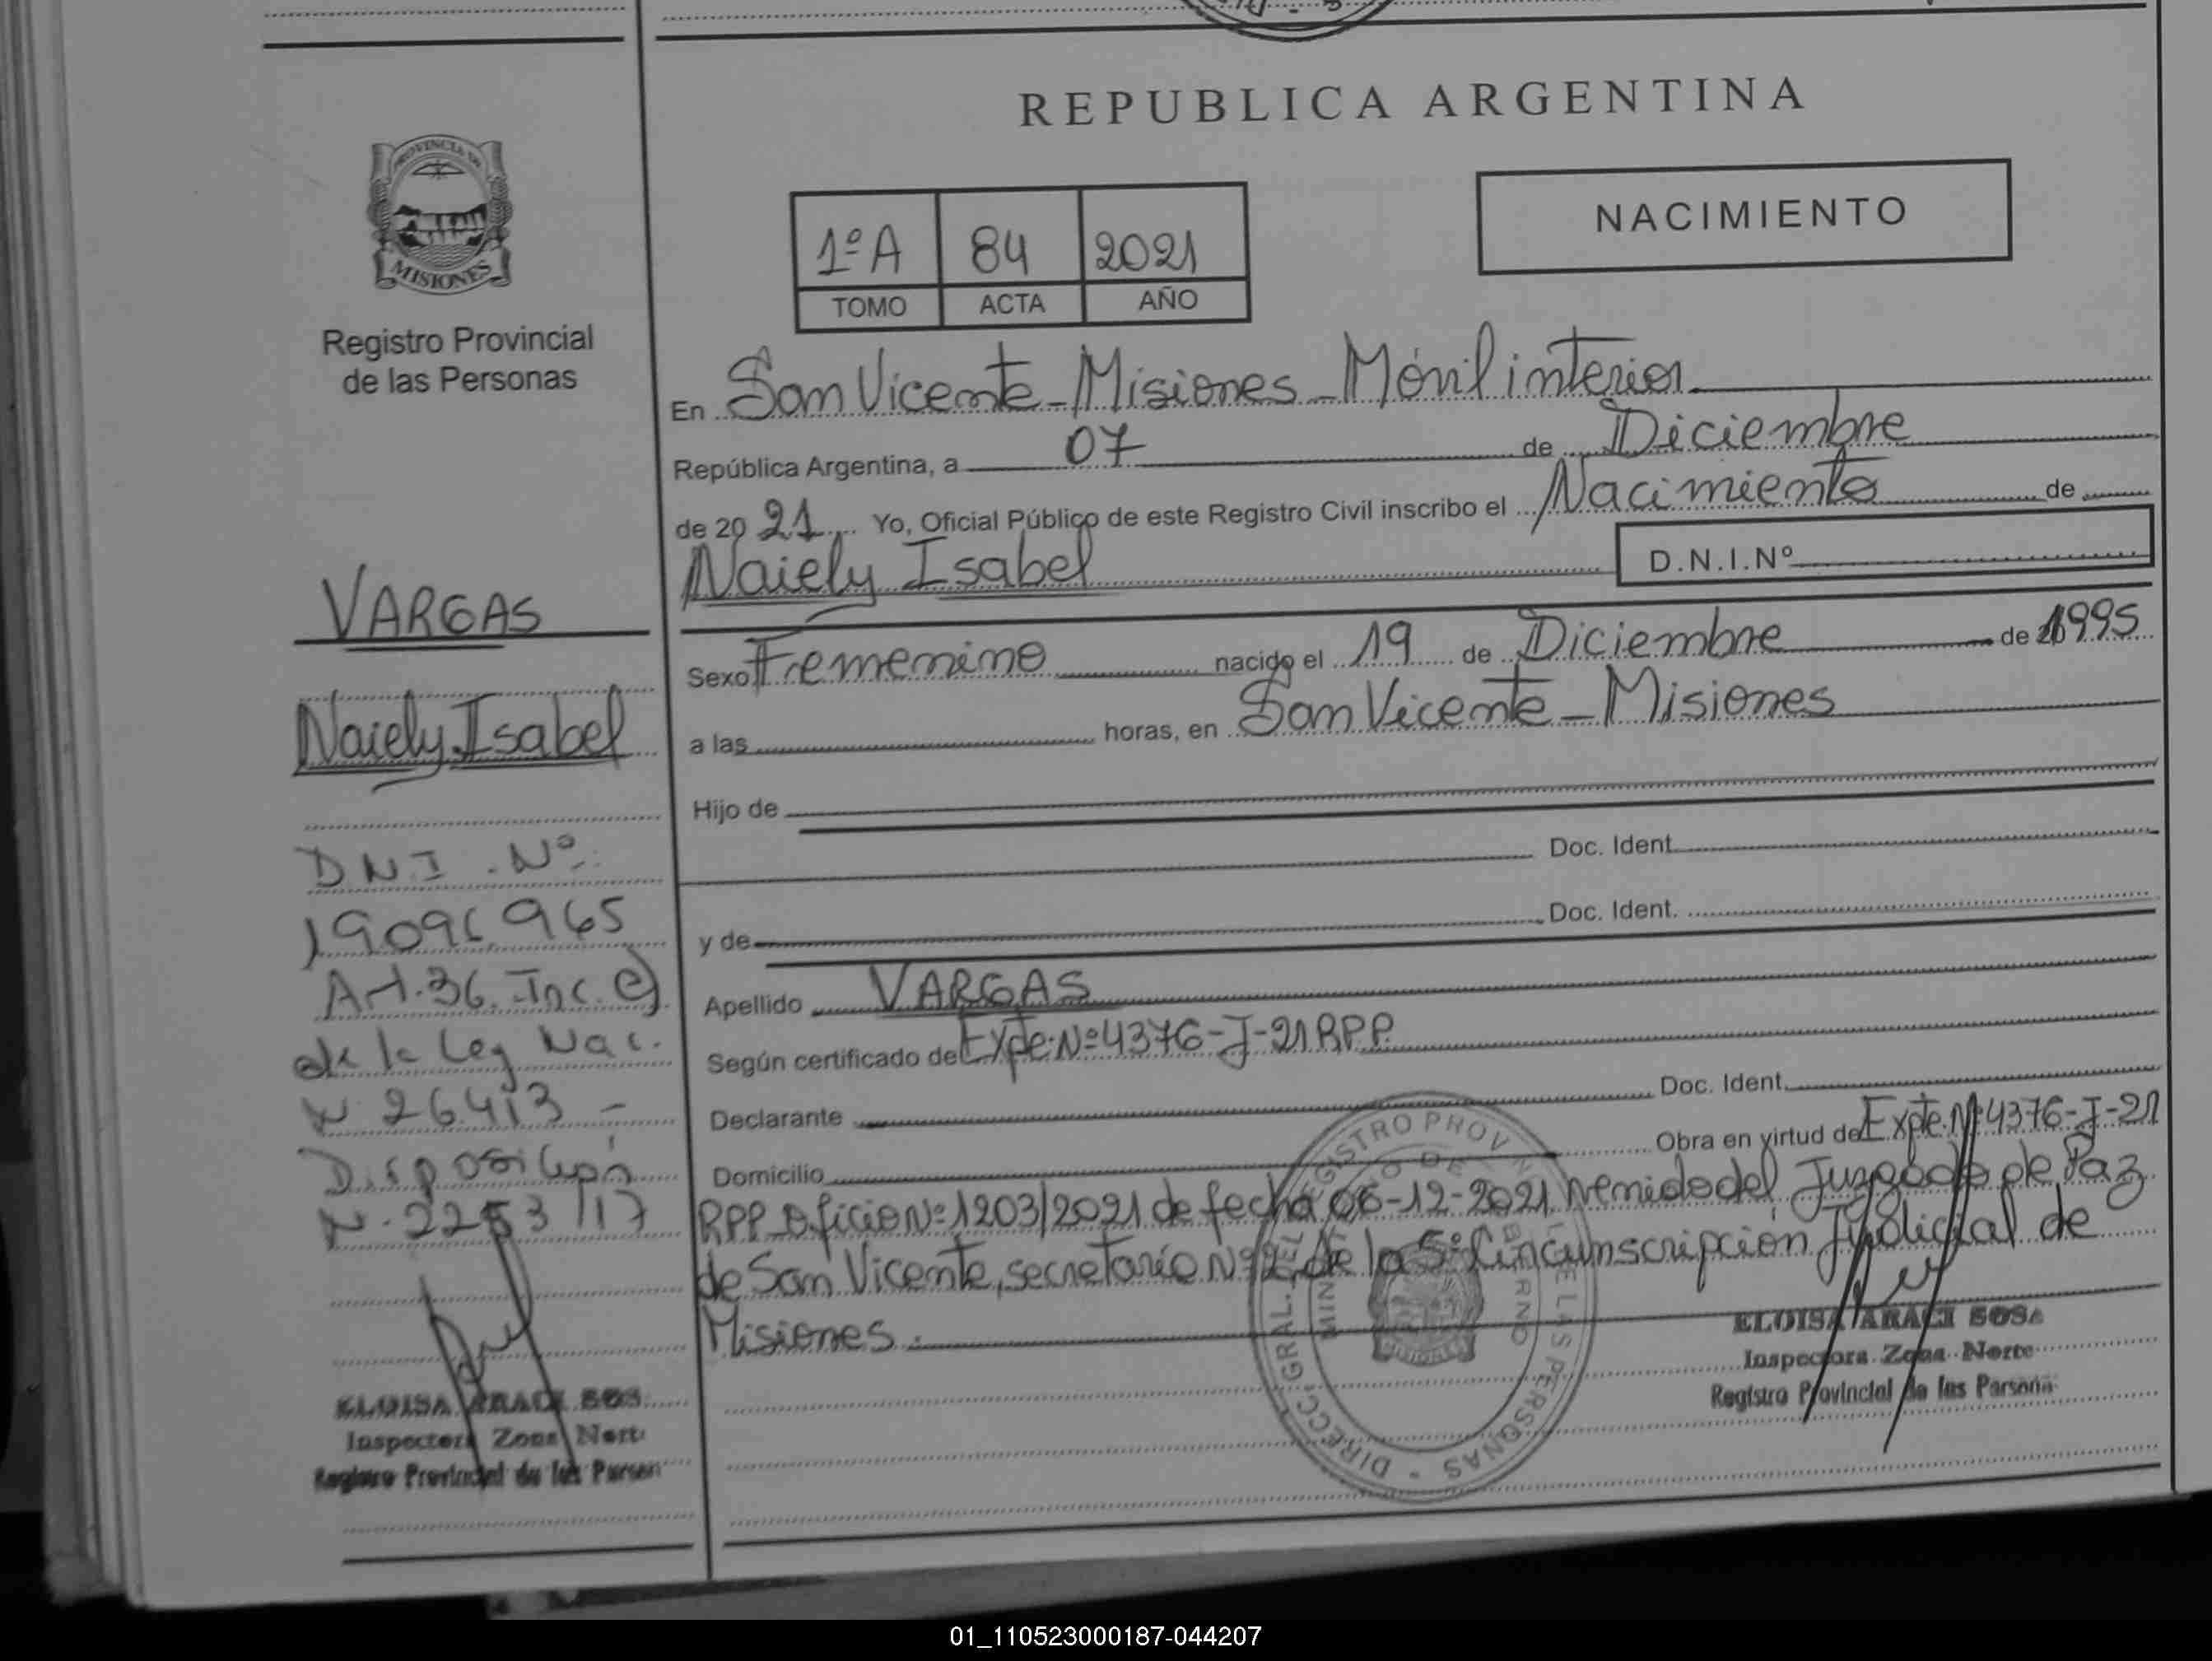 REPUBLICA ARGENTINA
PROVINCIA DE
MISIONES
Registro Provincial
de las Personas
1º A 84 2021
TOMO ACTA AÑO
NACIMIENTO
En San Vicente - Misiones - Móvil interior
República Argentina, a 07 de Diciembre
de 20 21 Yo, Oficial Público de este Registro Civil inscribo el Nacimiento de
Naiely Isabel D.N.I.Nº
Sexo Femenino nacido el 19 de Diciembre de 1995
a las horas, en San Vicente - Misiones
Hijo de
Doc. Ident.
y de Doc. Ident.
Apellido VARGAS
Según certificado de Expte. Nº 4376-J-21 RPP.
Declarante Doc. Ident.
Domicilio Obra en virtud de Expte. Nº 4376-J-21
RPP Oficio Nº 1203/2021 de fecha 06-12-2021, venido del Juzgado de Paz
de San Vicente, secretaría Nº 2, de la 5º Circunscripción Judicial de
Misiones.
VARGAS
Naiely Isabel
DNI. Nº
19096965
Art. 36. Inc. e)
de la Ley Nac.
Nº 26413 -
Disposición
N. 2253/17
ELOISA ARACI SOS
Inspectora Zona Nort
Registro Provincial de las Person
ELOISA ARACI SOSA
Inspectora Zona Norte
Registro Provincial de las Persona
DIRECC. GRAL. DEL REGISTRO PROV DE LAS PERSONAS
MISIONES
01_110523000187-044207